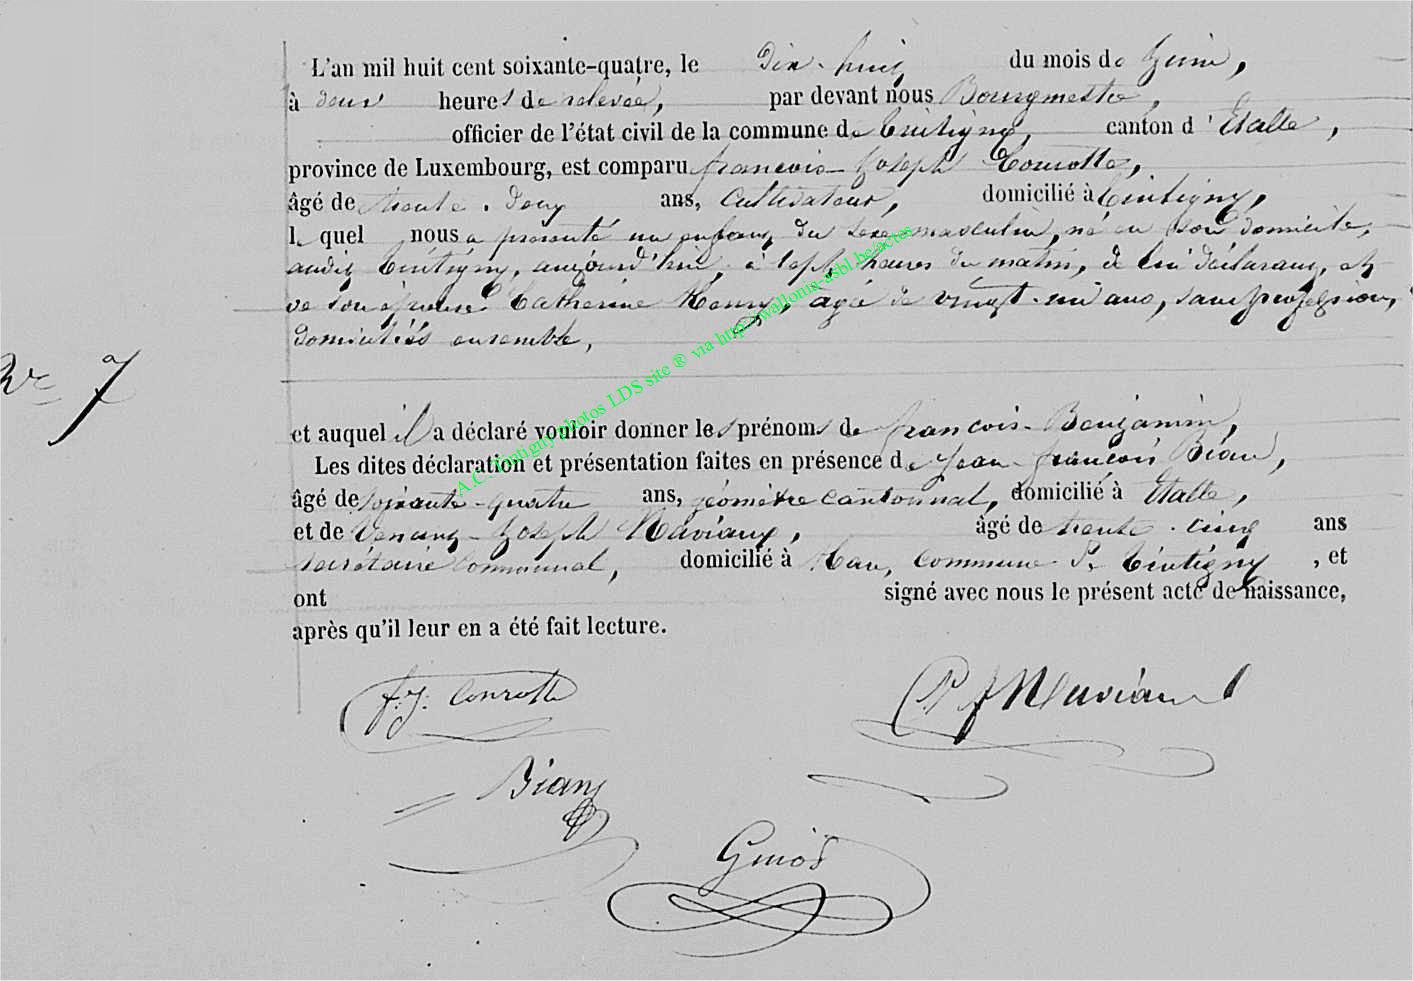 L'an mil huit cent soixante-quatre, le dix-huit du mois de Juin,
à deux heures de relevée, par devant nous Bourgmestre,
officier de l'état civil de la commune de Tintigny, canton d'Etalle,
province de Luxembourg, est comparu francois-Joseph Conrotte,
âgé de trente-deux ans, Cultivateur, domicilié à Tintigny,
lequel nous a présenté un enfant du sexe masculin, né en son domicile,
audit Tintigny, aujourd'hui, à sept heures du matin, de lui déclarant, et
de son épouse Catherine Henry, âgée de vingt-un ans, sans profession,
domiciliés ensemble,
N° 7
et auquel il a déclaré vouloir donner les prénoms de francois-Benjamin,
Les dites déclaration et présentation faites en présence de Jean-françois Bian,
âgé de soixante-quatre ans, géomètre cantonnal, domicilié à Etalle,
et de Joseph âgé de trente-cinq ans
secrétaire Communal, domicilié à Han, Commune de Tintigny, et
ont signé avec nous le présent acte de naissance,
après qu'il leur en a été fait lecture.
f.J. Conrotte
Bian
A.C. Tintigny photos LDS site ® via http://wallonia-asbl.be/actes